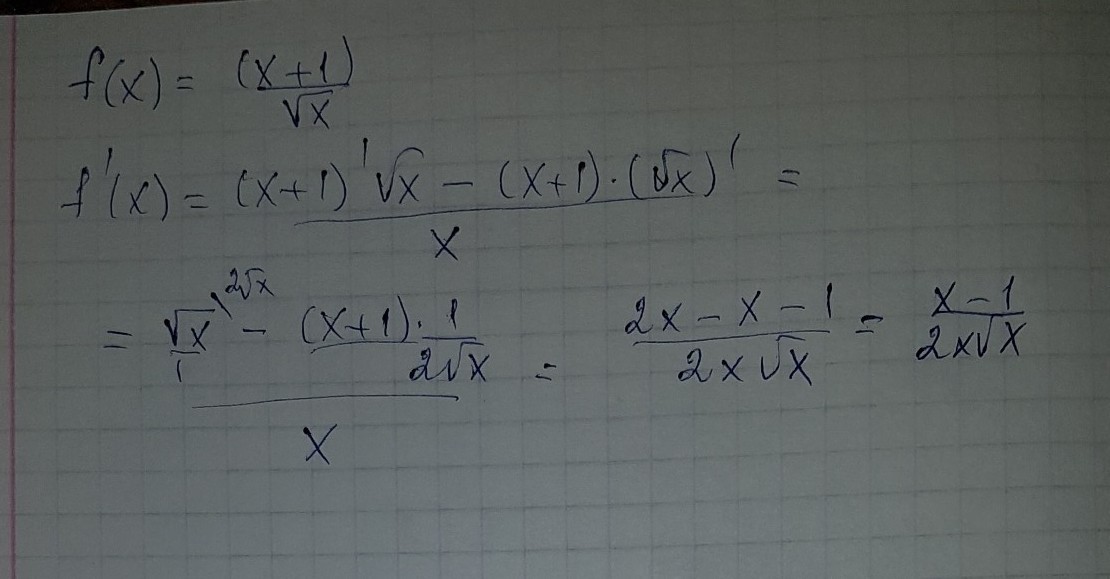 f(x) = (x+1)/√x
f'(x) = ((x+1)'√x − (x+1)·(√x)')/x =
= (√x/1 \2√x − (x+1)·1/2√x)/x = (2x−x−1)/2x√x = (x−1)/2x√x